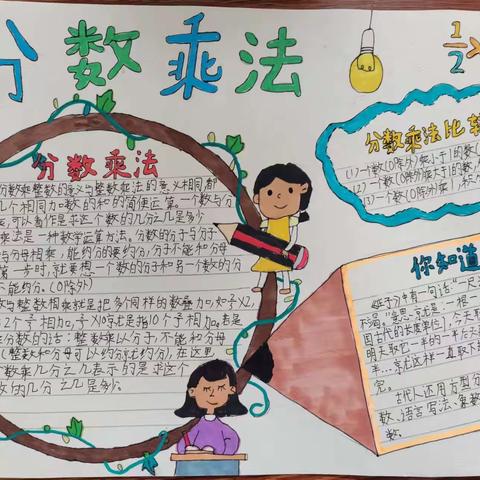 分数乘法
1/2×
分数乘法
分数乘整数的意义与整数乘法的意义相同,都
几个相同加数的和的简便运算。一个数与分
乘,可以看作是求这个数的几分之几是多少
乘法是一种数学运算方法。分数的分子与分子
与分母相乘,能约分的要约分,分子不能和分母
第一步时,就要想一个数的分子和另一个数的分
能约分。(0除外)
数与整数相乘就是把多个同样的数叠加
2个
相加,
×10就是指10个
相加。
分数的话:整数乘以分子,不能和分母
(整数和分母可以约分就约分),在这里
个数乘几分之几表示的是求这个
数的几分之几是多少。
分数乘法比较
(1)一个数(0除外)乘大于1的数(
(2)一个数(0除外)乘小于1的数(
(3)一个数(0除外)乘
你知道
庄子》中有一句话:"一尺
不竭"意思就是:一根一
国古代的长度单位),今天取
明天取它一半的一半,后天
半…就这样一直取下
完。
古代人还用方型分
数、语言写法、
数。